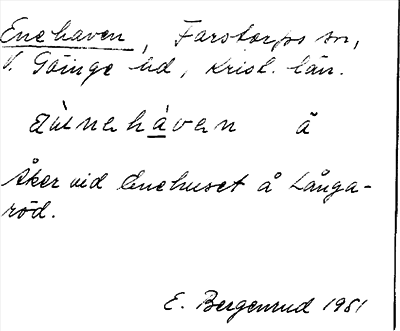 Enehaven, Farstorps sn,
V. Göinge hd, Krist. län.
åks vid Enehuset å Långa-
röd.
E. Bergenrud 1951